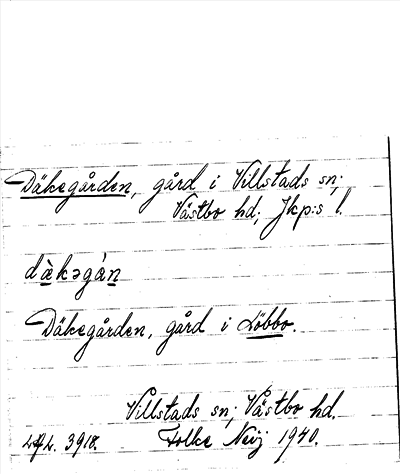 Däkegården, gård i Villstads sn;
Västbo hd; Jkp:s l.
dàkəgán
Däkegården, gård i Löbbo.
Villstads sn; Västbo hd.
3918. Folke Neij 1940.